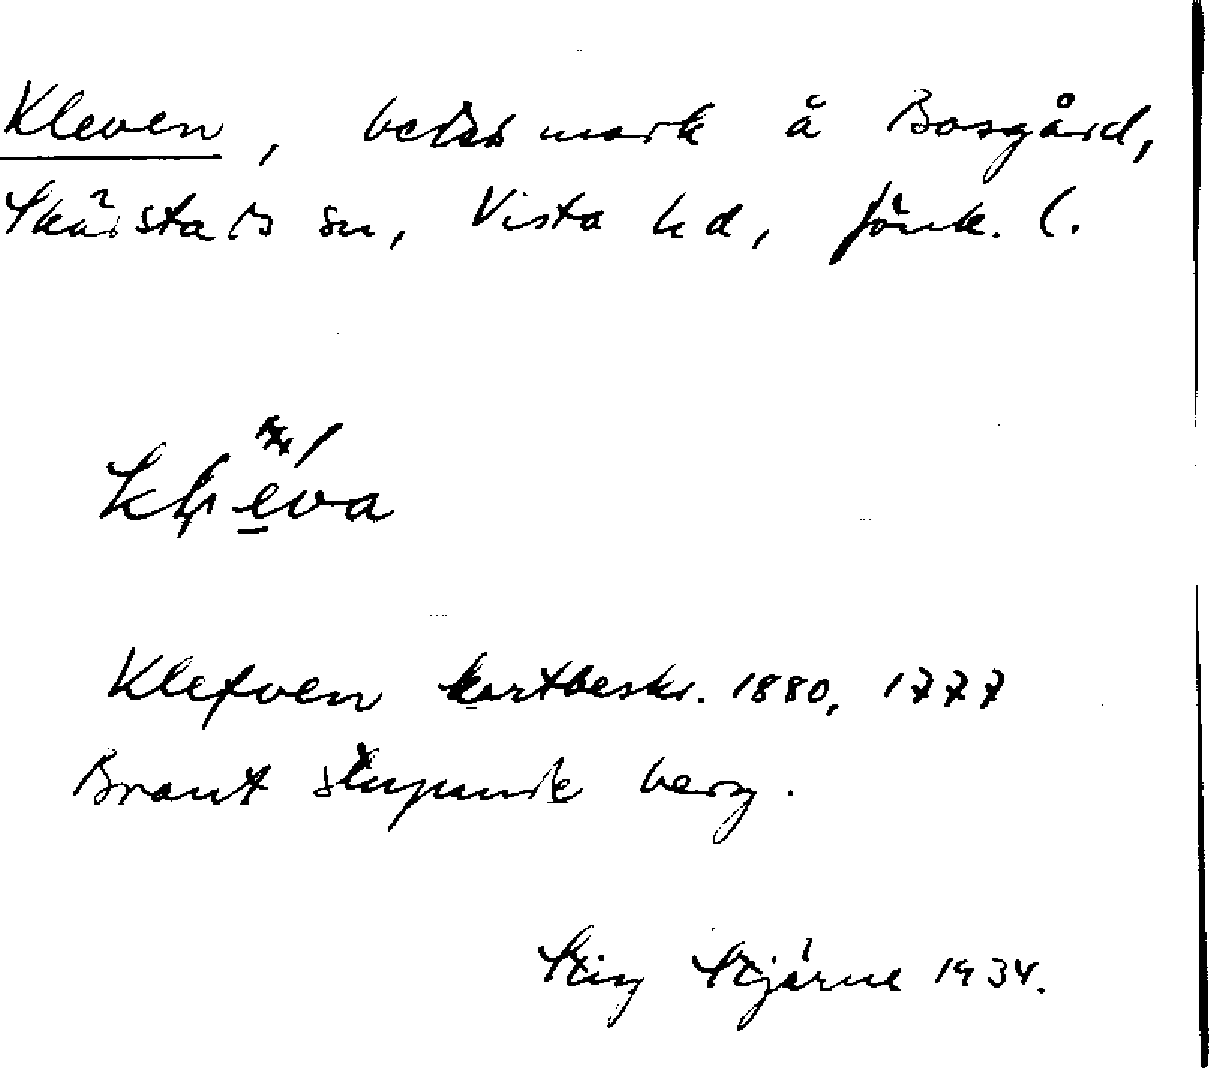 Kleven, betesmark å Bosgård,
Skärstads sn, Vista hd, Jönk. l.
kleva
Klefven kartbeskr. 1880, 1777
Brant stupande berg.
Stig Stjärne 1934.